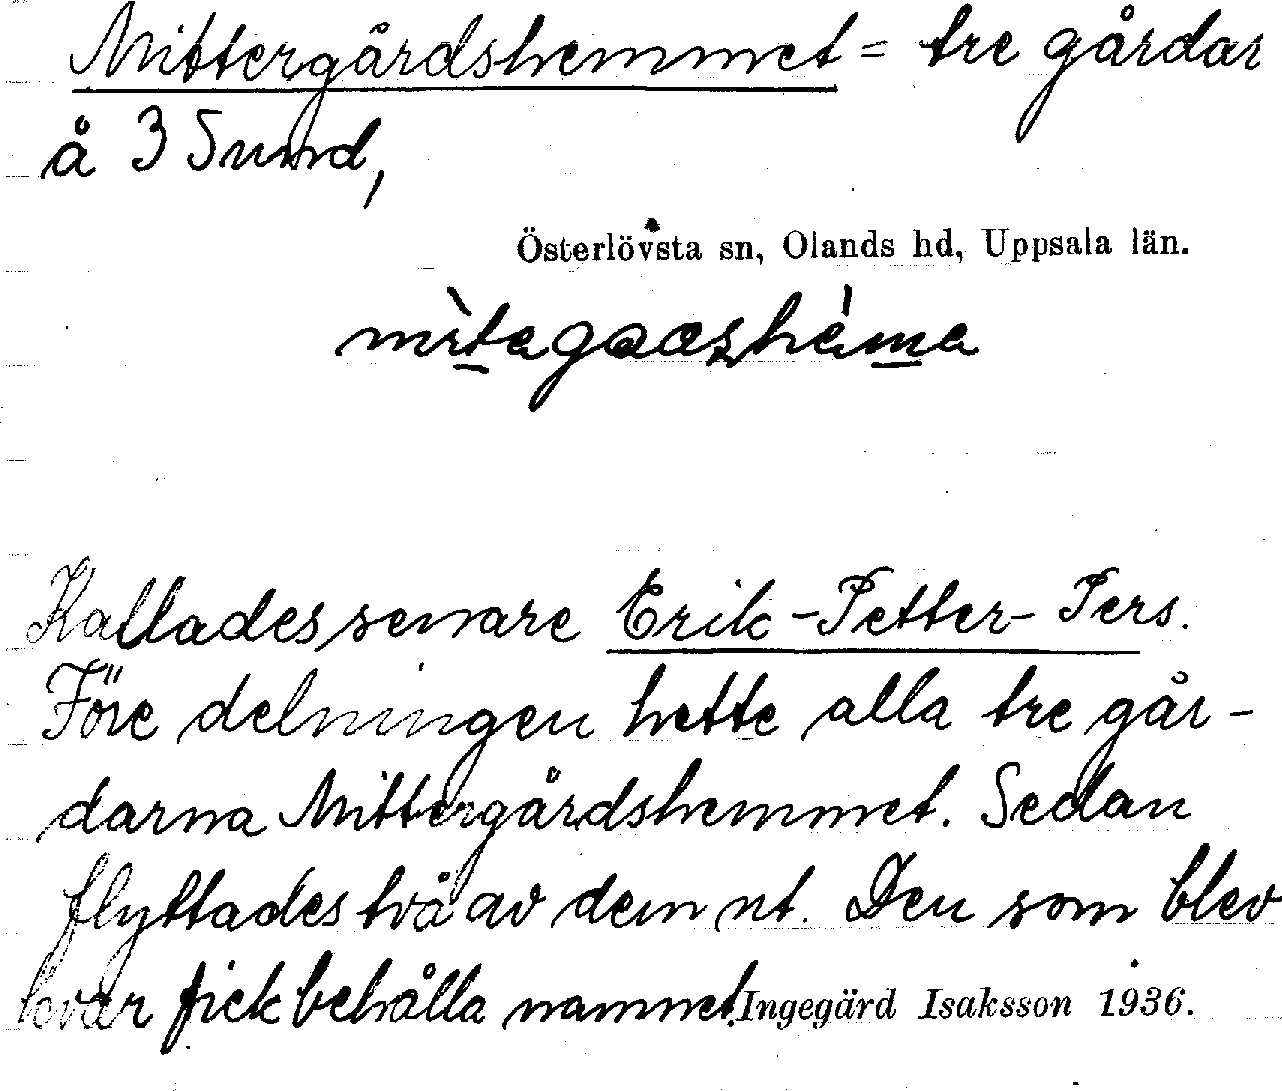 Mittergårdshemmet = tre gårdar
å 3 Sund,
Österlövsta sn, Olands hd, Uppsala län.
Kallades senare Erik-Petter-Pers.
Före delningen hette alla tre går-
darna Mittergårdshemmet. Sedan
flyttades två av dem ut. Den som blev
kvar fick behålla namnet.
Ingegärd Isaksson 1936.